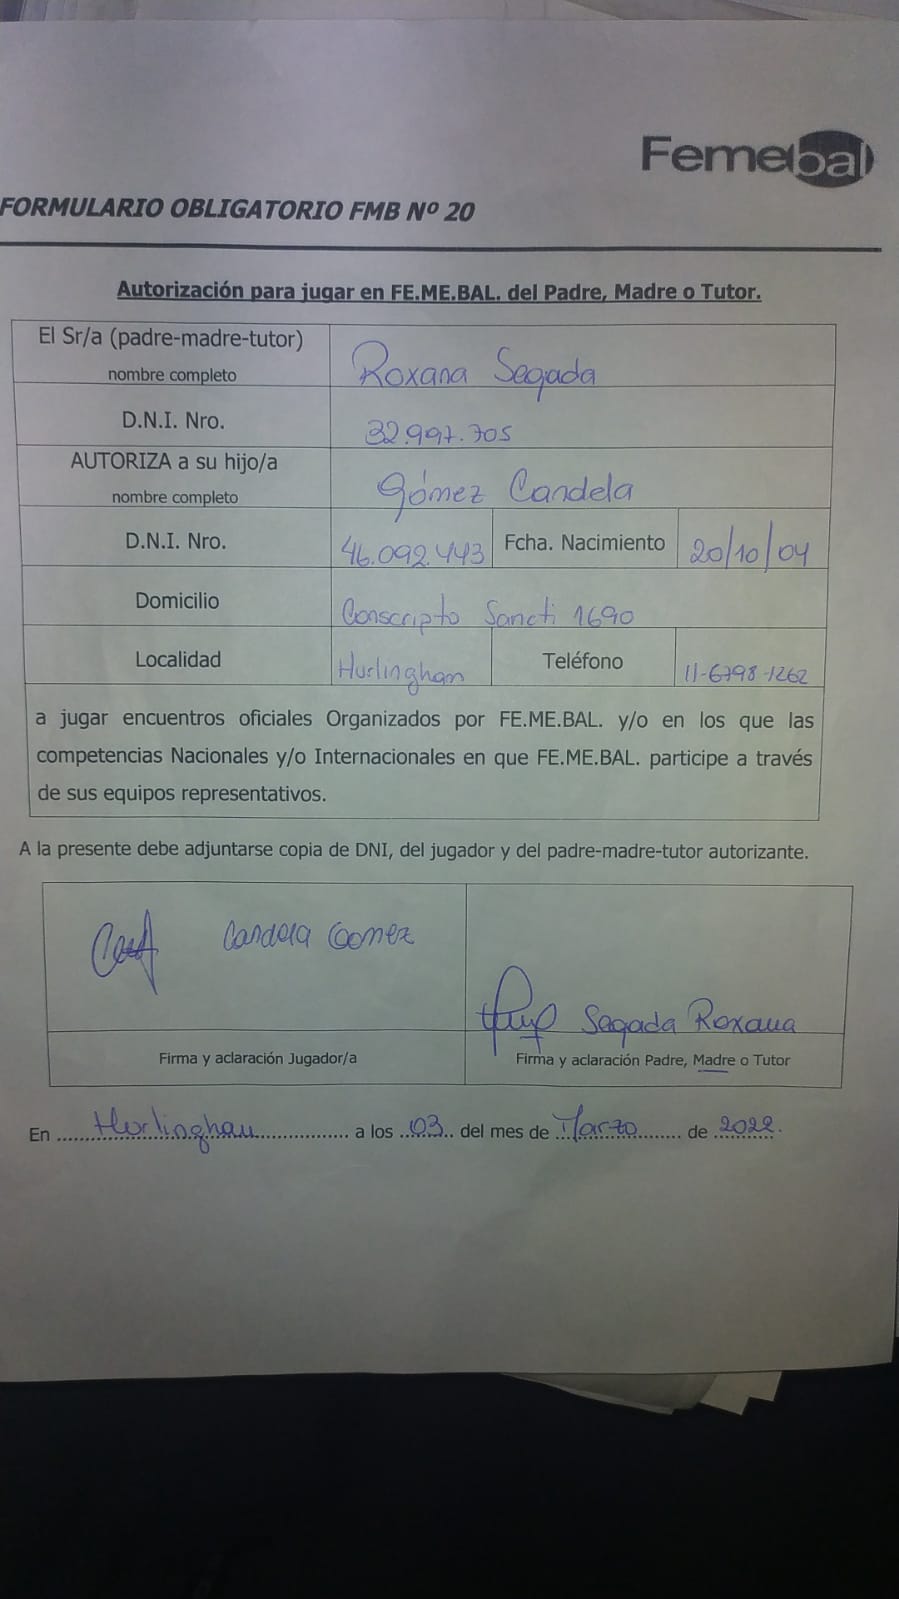 Femebal
FORMULARIO OBLIGATORIO FMB Nº 20
Autorización para jugar en FE.ME.BAL. del Padre, Madre o Tutor.
El Sr/a (padre-madre-tutor)
nombre completo
Roxana Segada
D.N.I. Nro.
32.997.705
AUTORIZA a su hijo/a
nombre completo
Gómez Candela
D.N.I. Nro.
46.092.443
Fcha. Nacimiento
20/10/04
Domicilio
Conscripto Sancti 1690
Localidad
Hurlingham
Teléfono
11-6798-1262
a jugar encuentros oficiales Organizados por FE.ME.BAL. y/o en los que las
competencias Nacionales y/o Internacionales en que FE.ME.BAL. participe a través
de sus equipos representativos.
A la presente debe adjuntarse copia de DNI, del jugador y del padre-madre-tutor autorizante.
Candela Gomez
Segada Roxana
Firma y aclaración Jugador/a
Firma y aclaración Padre, Madre o Tutor
En Hurlingham a los 03 del mes de Marzo de 2022.